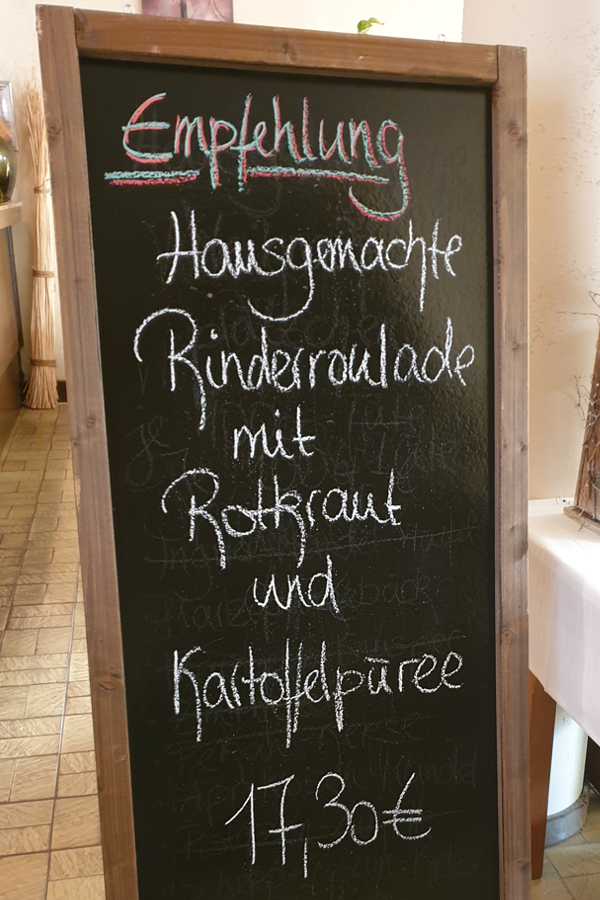 Empfehlung
Hausgemachte
Rinderroulade
mit
Rotkraut
und
Kartoffelpüree
17,30€